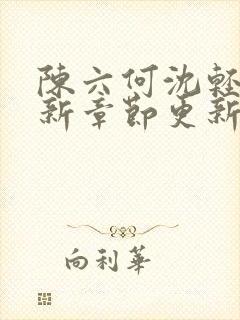 陳六何沈輕
新章節更新
向利華